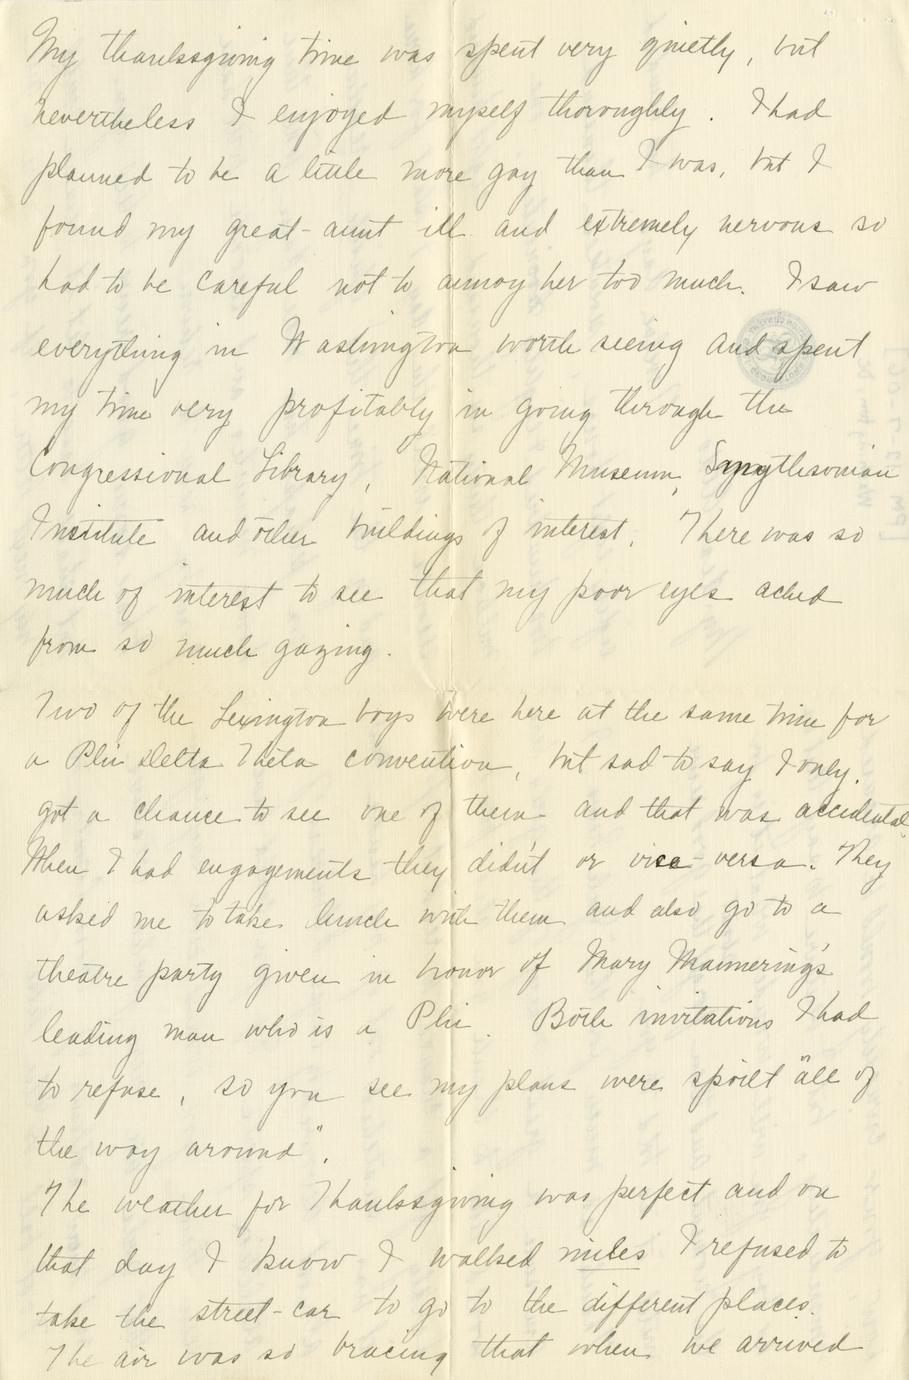 My thanksgiving time was spent very quietly, but
nevertheless I enjoyed myself thoroughly. I had
planned to be a little more gay than I was, but I
found my great-aunt ill and extremely nervous so
had to be careful not to annoy her too much. I saw
everything in Washington worth seeing and spent
my time very profitably in going through the
Congressional Library, National Museum, Smythsonian
Institute and other buildings of interest. There was so
much of interest to see that my poor eyes ached
from so much gazing.
Two of the Lexington boys were here at the same time for
a Phi Delta Theta convention, but sad to say I only
got a chance to see one of them and that was accidental.
When I had engagements they didn't or vice-versa. They
asked me to take lunch with them and also go to a
theatre party given in honor of Mary Mannering's
leading man who is a Phi. Both invitations I had
to refuse, so you see my plans were spoilt "all of
the way around".
The weather for Thanksgiving was perfect and on
that day I know I walked miles I refused to
take the street-car to go to the different places.
The air was so bracing that when we arrived